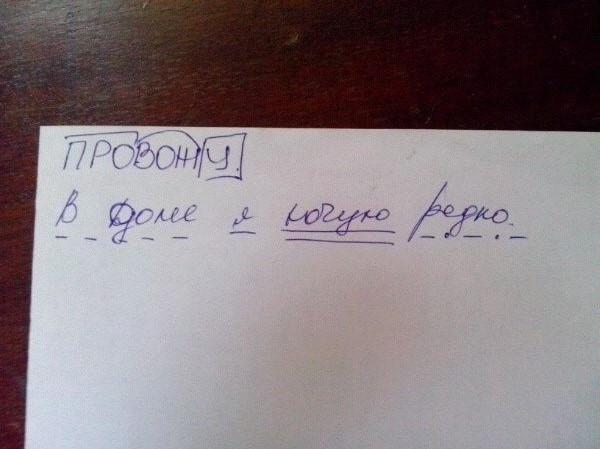 ПРОВОЖУ.
В доме я ночую редко.